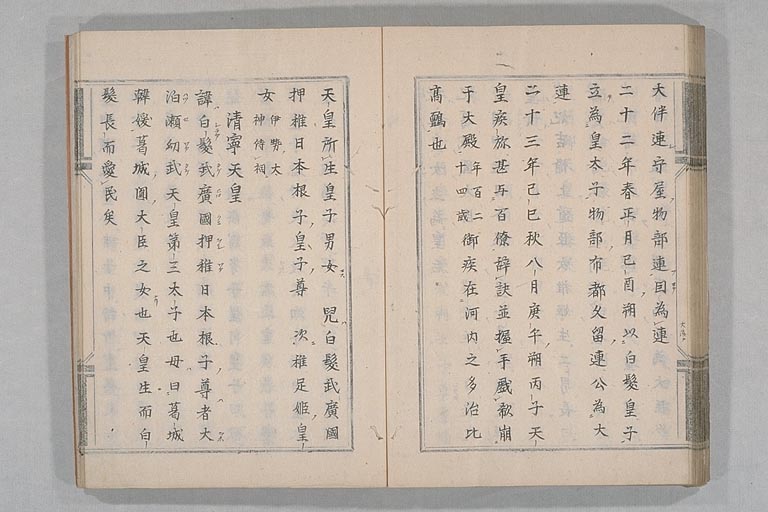 大伴連守屋物部連目為連
二十二年春正月己酉朔以白髮皇子
立為皇太子物部布都久留連公為大
連
二十三年己巳秋八月庚午朔丙子天
皇疾弥甚与百僚辞訣並握手戯欷崩
于大殿年百二十四歳御疾在河内之多治比
高鸇也
天皇所生皇子男女兒白髮武廣國
押稚日本根子皇子尊次稚足姫皇
女伊勢大神侍祠
清寧天皇
諱白髮武廣國押稚日本根子尊者大
泊瀬幼武天皇第三太子也母曰葛城
韓媛葛城圓大臣之女也天皇生而白
髮長而愛民矣